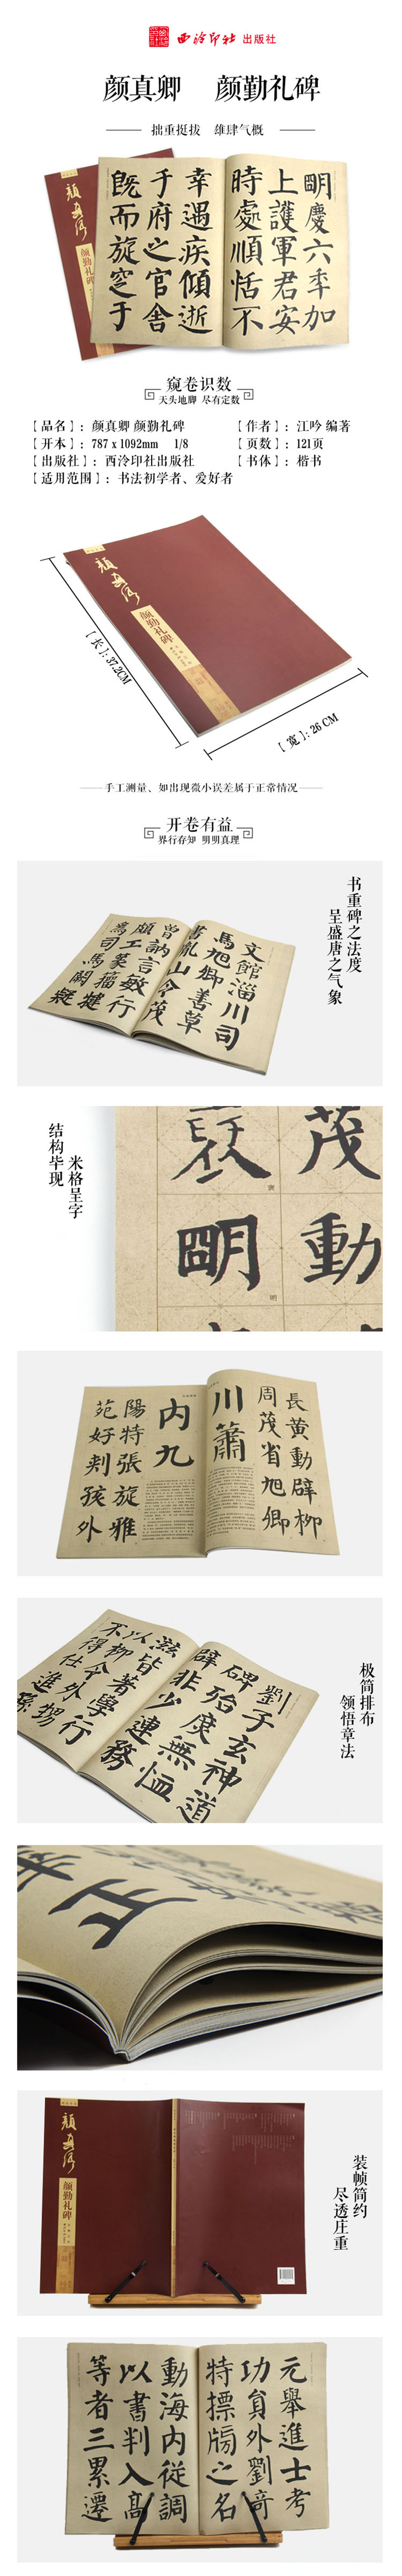 西泠印社 出版社
颜真卿 颜勤礼碑
拙重挺拔 雄肆气概
颜真卿
颜勤礼碑
明慶六年加
上護軍君安
時處順恬不
幸遇疾傾逝
于府之官舍
既而旋窆于
窥卷识数
天头地脚 尽有定数
【品名】：颜真卿 颜勤礼碑
【作者】：江吟 编著
【开本】：787 x 1092mm 1/8
【页数】：121页
【出版社】：西泠印社出版社
【书体】：楷书
【适用范围】：书法初学者、爱好者
颜真卿
颜勤礼碑
【长】:37.2CM
【宽】:26 CM
手工测量、如出现微小误差属于正常情况
开卷有益
界行存知 明明真理
书重碑之法度
呈盛唐之气象
文館淄川司
馬旭卿善草
書胤山令茂
曾訥言敏行
頗工篆籀犍
為司馬闕疑
米格呈字
结构毕现
茂
動
裒
明
裒
明
長黄動辟柳
周茂省旭卿
川蕭
内九
陽特張旋雅
苑好判孩外
极简排布
领悟章法
劉子玄神道
碑殆庶無恤
辟非少連務
滋皆著學行
以柳令外甥
不得仕進孫
正
装帧简约
尽透庄重
颜真卿
颜勤礼碑
元舉進士考
功員外劉奇
特摽牓之名
動海内從調
以書判入高
等者三累遷